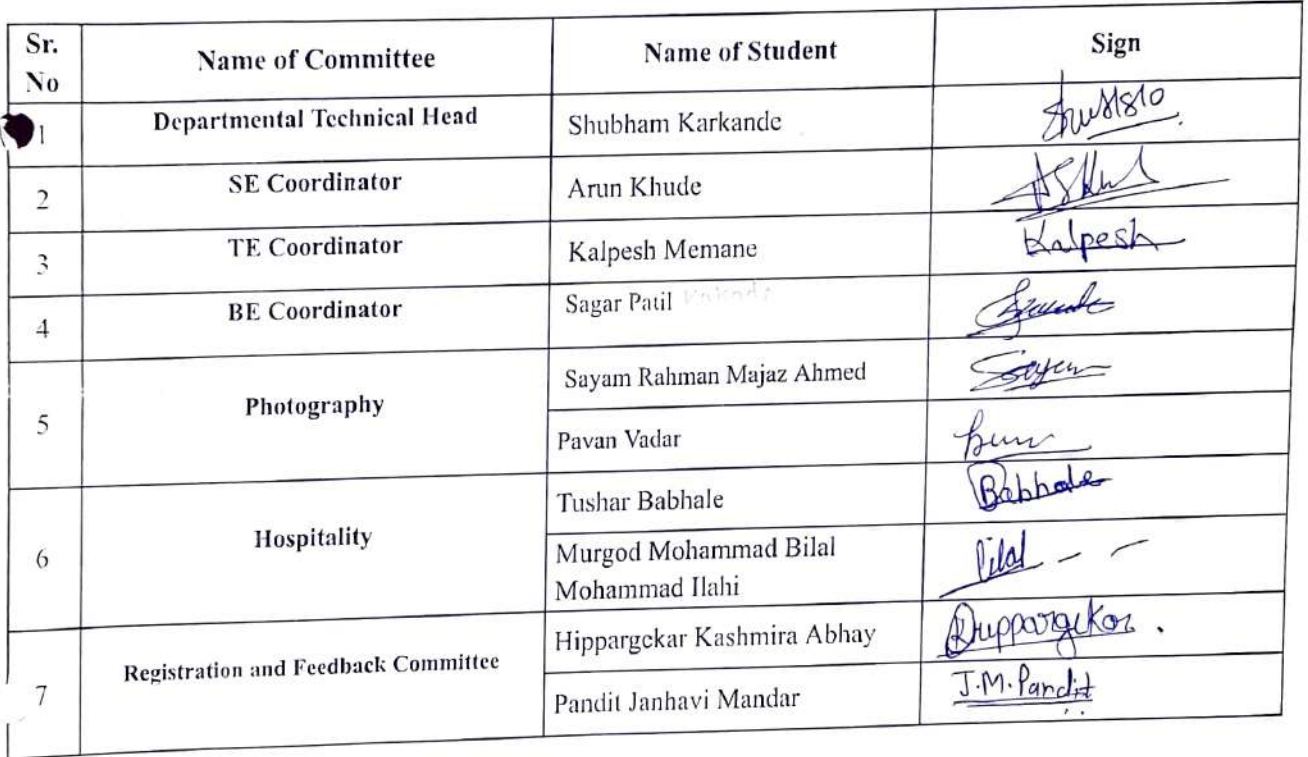 Sr. No Name of Committee Name of Student Sign
1 Departmental Technical Head Shubham Karkande
2 SE Coordinator Arun Khude
3 TE Coordinator Kalpesh Memane Kalpesh
4 BE Coordinator Sagar Patil
5 Photography Sayam Rahman Majaz Ahmed Sayam
Pavan Vadar
6 Hospitality Tushar Babhale Babhale
Murgod Mohammad Bilal
Mohammad Ilahi Bilal
7 Registration and Feedback Committee Hippargekar Kashmira Abhay
Pandit Janhavi Mandar J.M.Pandit